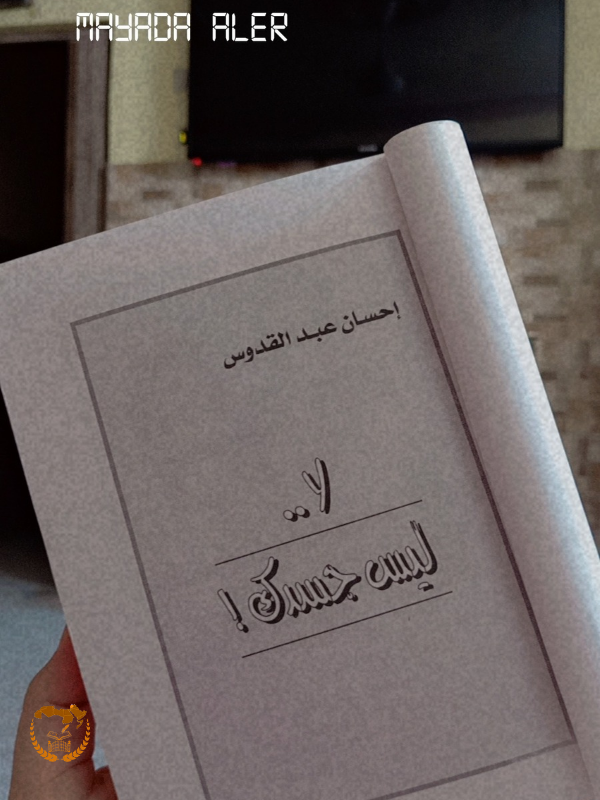 MAYADA ALER
إحسان عبد القدوس
لا ..
ليس جسدك !